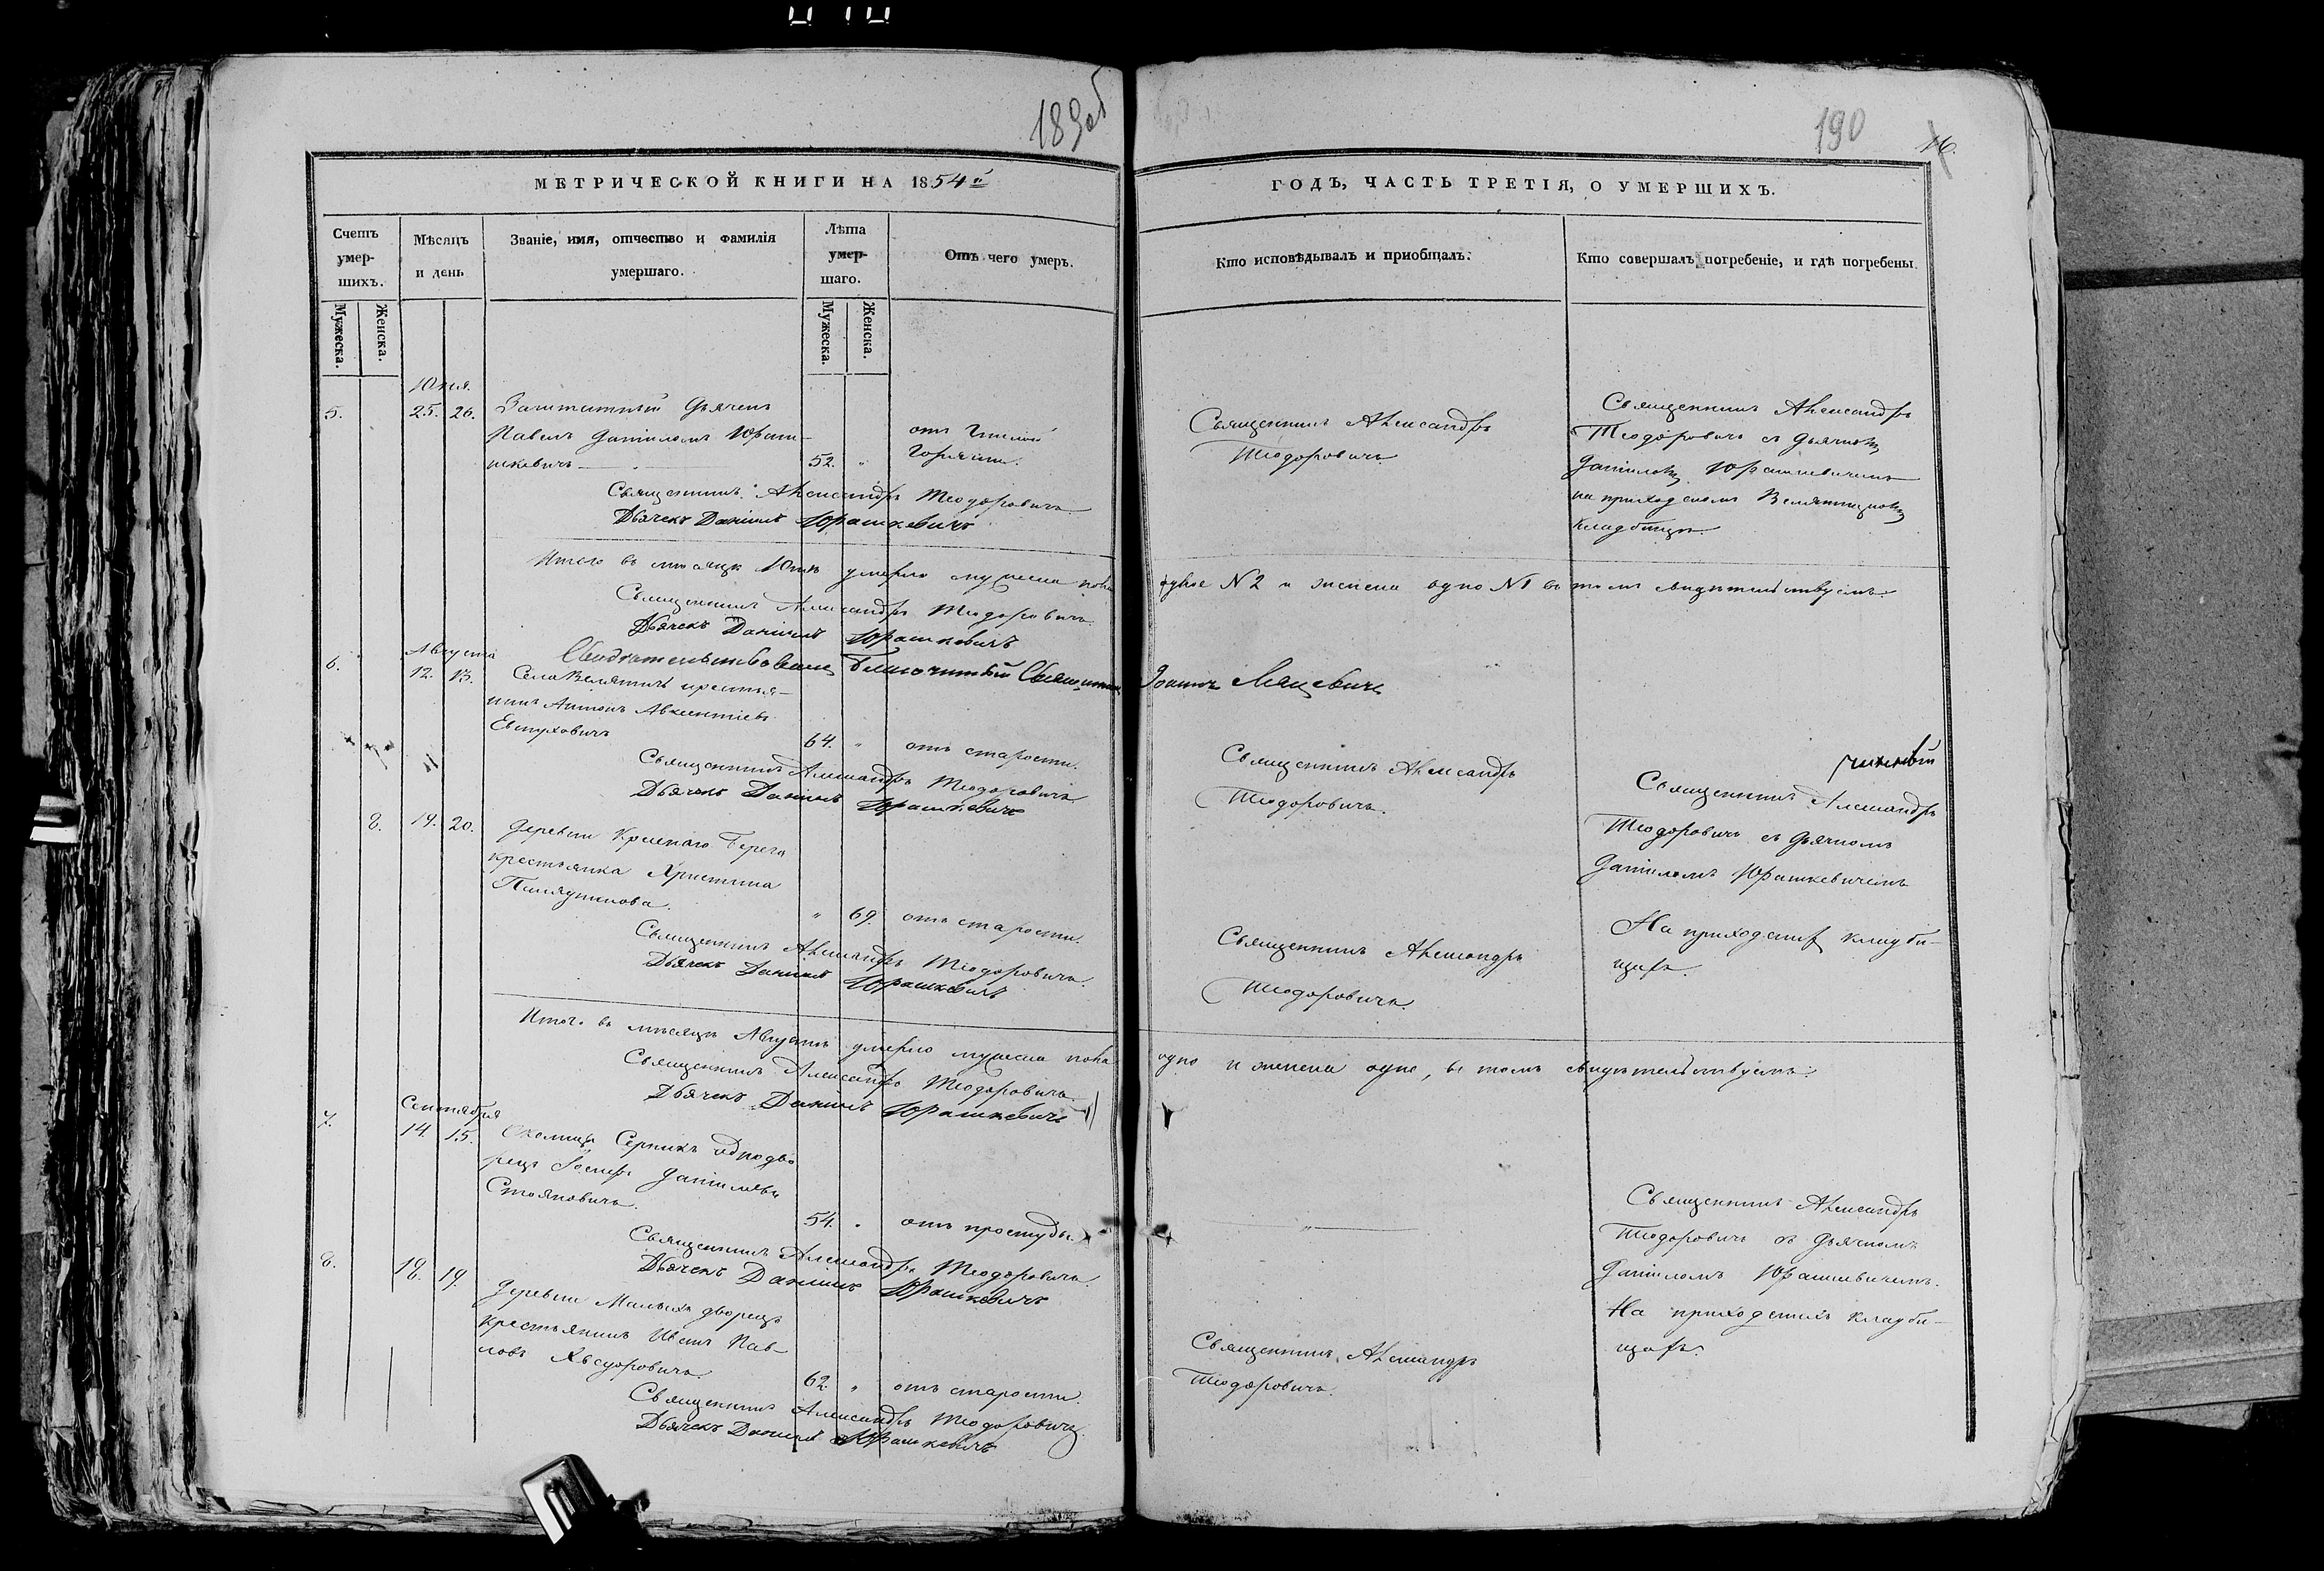 189об
190
16.
МЕТРИЧЕСКОЙ КНИГИ НА 1854й
ГОДЪ, ЧАСТЬ ТРЕТІЯ, О УМЕРШИХЪ.
Счетъ умер-шихъ.
Мужеска.
Женска.
Мѣсяцъ и день
Званіе, имя, отчество и фамилія умершаго.
Лѣта умер-шаго.
Мужеска.
Женска.
Отъ чего умеръ.
Кто исповѣдывалъ и приобщалъ.
Кто совершалъ погребеніе, и гдѣ погребены.
5.
25. 26.
Заштатный Дьячекъ
Павелъ Даниловъ Юраш-
кевичъ
52. „
отъ
горячки.
Священникъ Александръ
Теодоровичъ
Священникъ Александръ
Теодоровичъ съ Дьячкомъ
Даниломъ Юрашкевичемъ
на приходскомъ
кладбищѣ.
Священникъ Александръ Теодоровичъ
Дьячекъ Даніилъ Юрашкевичъ
Итого въ мѣсяцѣ умерло мужеска пола двое N2 и женска одно N1 въ томъ свидѣтельствуемъ.
Священникъ Александръ Теодоровичъ
Дьячекъ Даніилъ Юрашкевичъ
Благочинный Священникъ Іоаннъ
Августа
6.
12. 13.
Села Велятичъ крестья-
нинъ Антонъ Авксентіевъ
Евтуховичъ
64. „
отъ старости.
Священникъ Александръ
Теодоровичъ.
Священникъ Александръ
Теодоровичъ съ Дьячкомъ
Даниломъ Юрашкевичемъ
На приходскихъ кладби-
щахъ.
Священникъ Александръ Теодоровичъ
Дьячекъ Даніилъ Юрашкевичъ
8.
19. 20.
Деревни Берега
крестьянка Христина
„ 69.
отъ старости.
Священникъ Александръ
Теодоровичъ.
Священникъ Александръ Теодоровичъ.
Дьячекъ Даніилъ Юрашкевичъ
Итого въ мѣсяцѣ Августѣ умерло мужеска пола одно и женска одно, въ томъ свидѣтельствуемъ.
Священникъ Александръ Теодоровичъ.
Дьячекъ Даніилъ Юрашкевичъ
Сентября
7.
14. 15.
Околицы однодво-
рецъ Іосифъ Даниловъ
Стояновичъ.
54. „
отъ простуды.
„
Священникъ Александръ
Теодоровичъ съ Дьячкомъ
Даниломъ Юрашкевичемъ.
На приходскихъ кладби-
щахъ.
Священникъ Александръ Теодоровичъ.
Дьячекъ Даніилъ Юрашкевичъ
8.
18. 19.
Деревни Малыхъ
крестьянинъ Иванъ Пав-
ловъ
62. „
отъ старости.
Священникъ Александръ
Теодоровичъ.
Священникъ Александръ Теодоровичъ.
Дьячекъ Даніилъ Юрашкевичъ